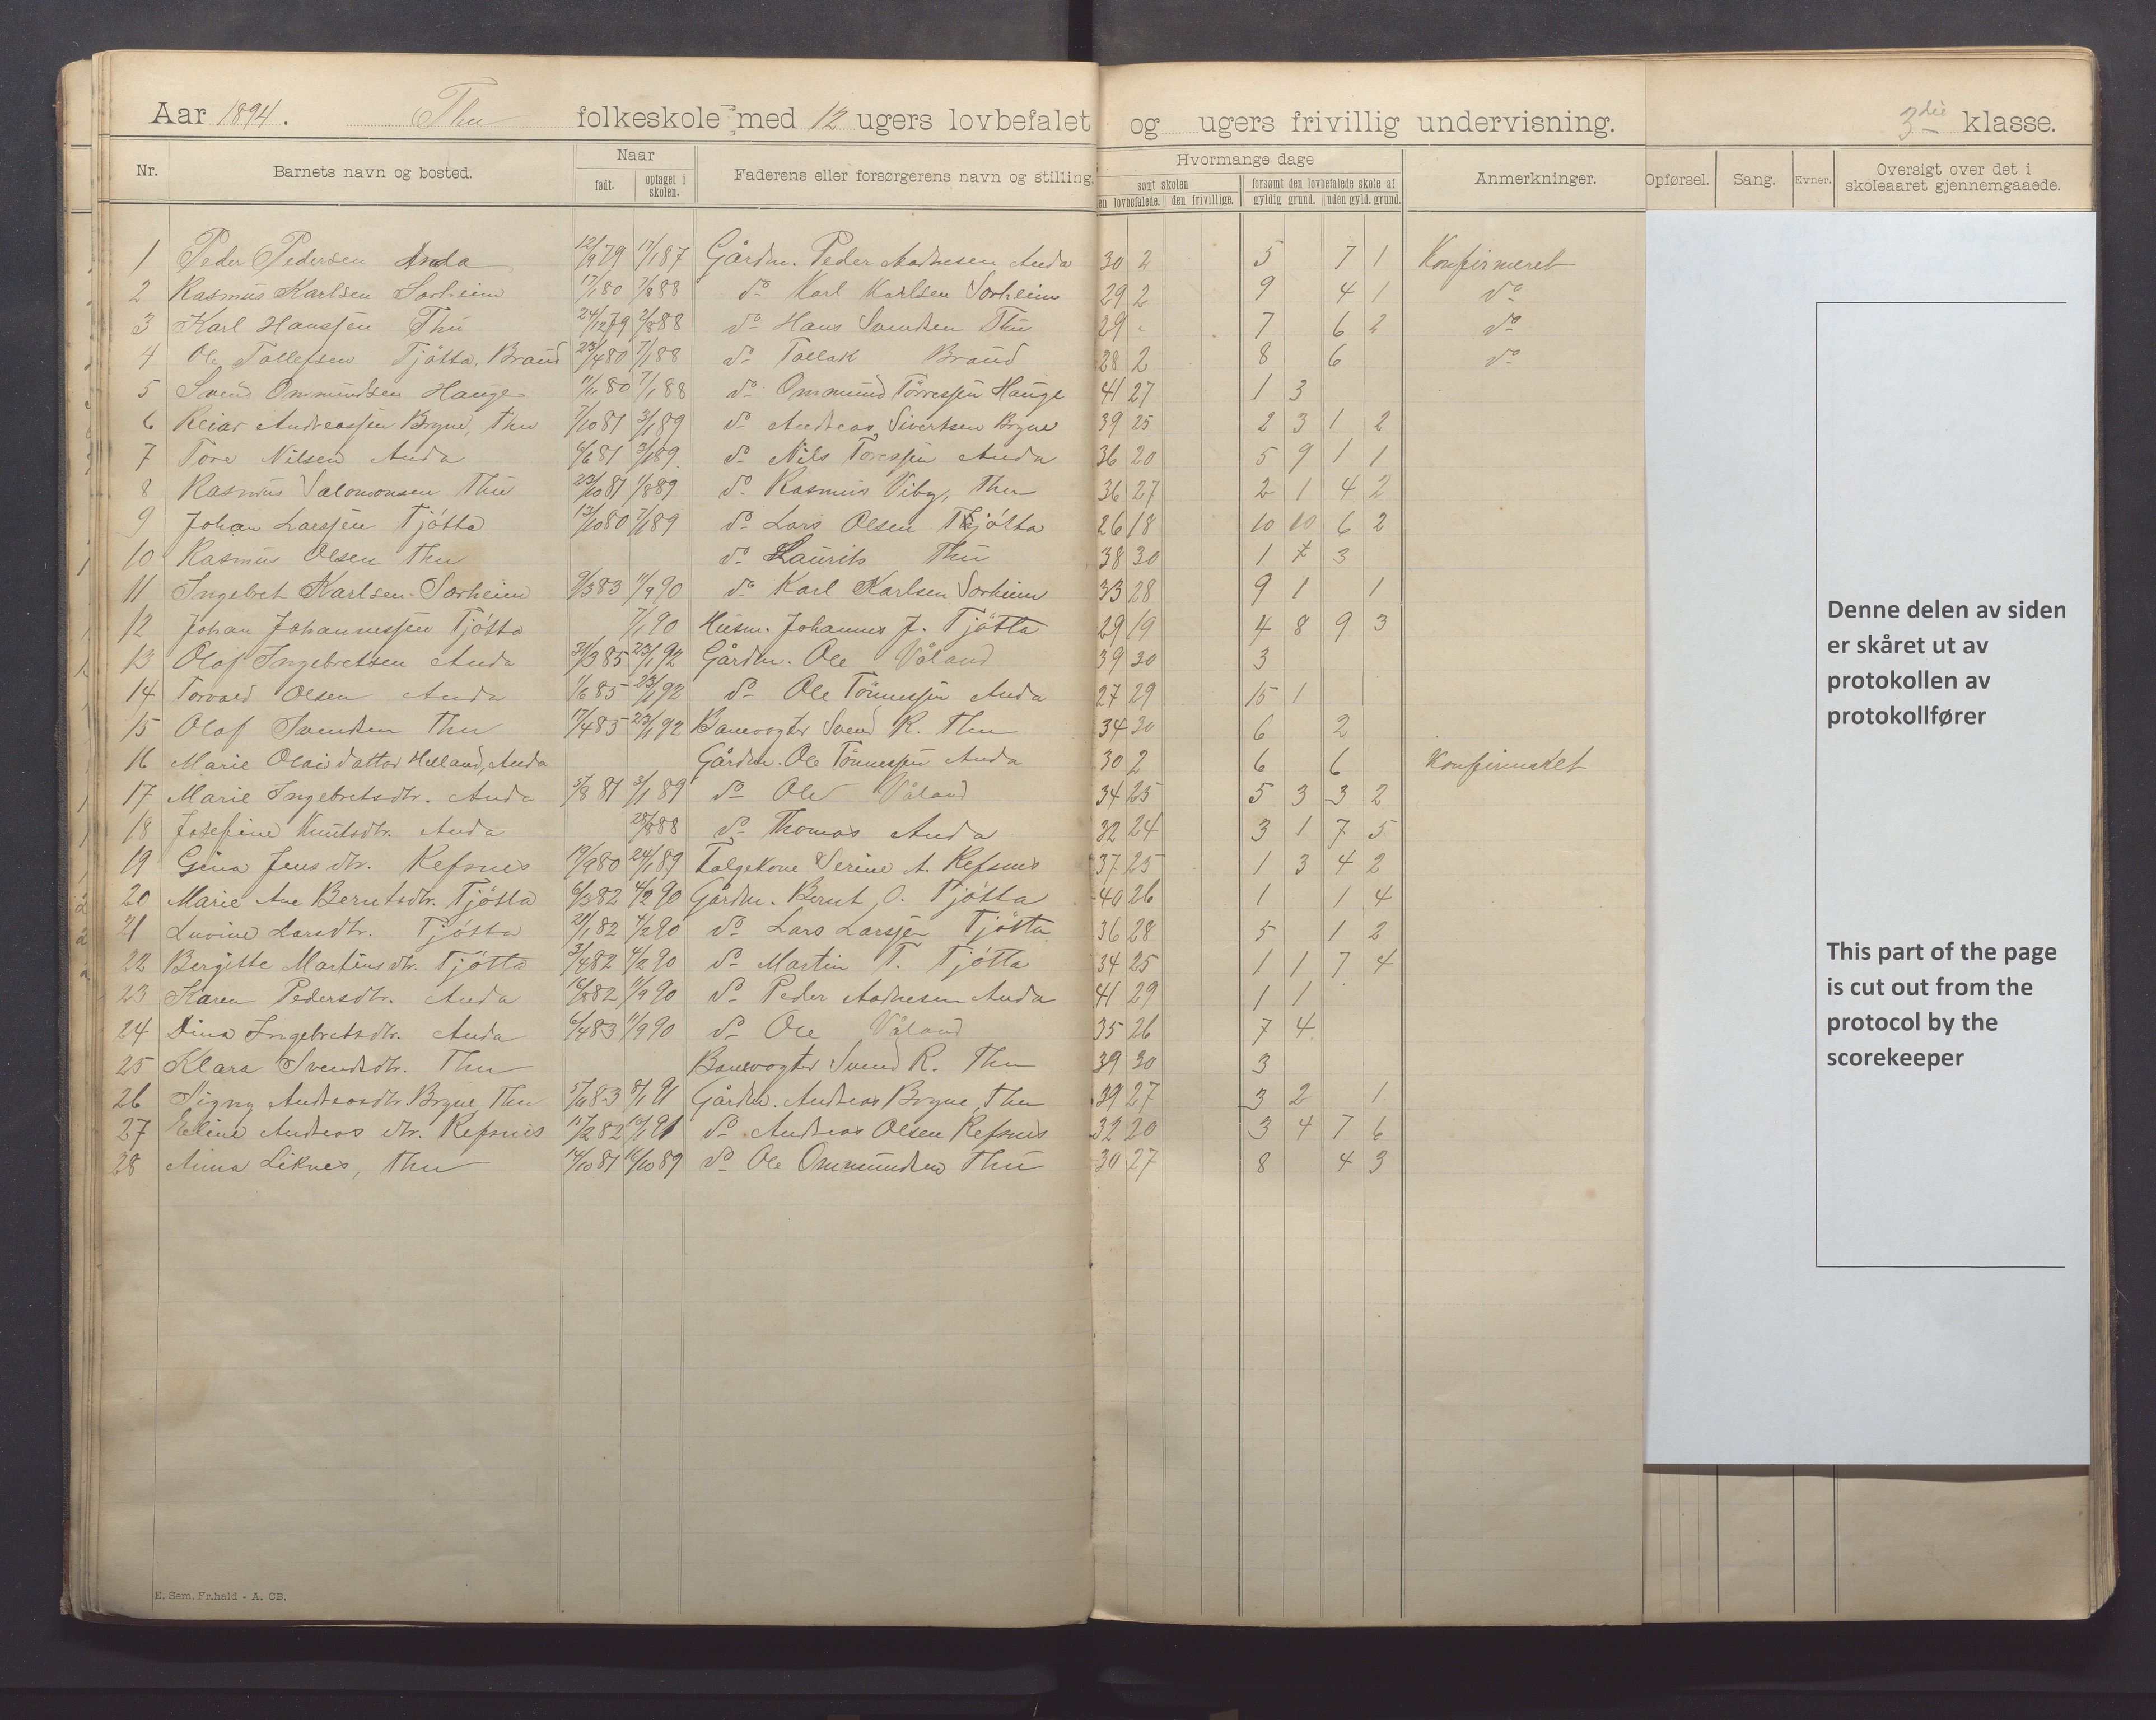 Aar 1894. Thu folkeskole med 12 ugers lovbefalet og ugers frivillig undervisning. 3die klasse.
Nr. Barnets navn og bosted. Naar født. optaget i skolen. Faderens eller forsørgerens navn og stilling. Hvormange dage søgt skolen den lovbefalede. den frivillige. forsømt den lovbefalede skole af gyldig grund. uden gyld. grund. Anmerkninger. Opførsel. Sang. Evner. Oversigt over det i skoleaaret gjennemgaaede.
1 Peder Pedersen Anda 12/9 79 17/1 87 Gårdm. Peder Aadnesen Anda 30 2 5 7 1 Konfirmeret
2 Rasmus Karlsen Sørheim 17/1 80 7/8 88 do Karl Karlsen Sørheim 29 2 9 4 1 do
3 Karl Hanssen Thu 24/12 79 2/8 88 do Hans Svendsen Thu 29 7 6 2 do
4 Ole Tollefsen Tjøtta, Braud 23/4 80 7/1 88 do Tollak Braud 28 2 8 6 do
5 Svend Ommundsen Hauge 11/1 80 7/1 88 do Ommund Tørressen Hauge 41 27 1 3
6 Reiar Andreassen Bryne, Thu 7/10 81 3/1 89 do Andreas Sivertsen Bryne 39 25 2 3 1 2
7 Tore Nilsen Anda 6/6 81 3/1 89 do Nils Toressen Anda 36 20 5 9 1 1
8 Rasmus Salomonsen Thu 23/10 81 1/8 89 do Rasmus Viby, Thu 36 27 2 1 4 2
9 Johan Larssen Tjøtta 13/10 80 7/1 89 do Lars Olsen Tjøtta 26 18 10 10 6 2
10 Rasmus Olsen Thu do Laurits Thu 38 30 1 3
11 Ingebret Karlsen Sørheim 9/3 83 11/9 90 do Karl Karlsen Sørheim 33 28 9 1 1
12 Johan Johannessen Tjøtta 7/1 90 Husm. Johannes J. Tjøtta 29 19 4 8 9 3
13 Olaf Ingebretsen Anda 31/3 85 23/1 92 Gårdm. Ole Våland 39 30 3
14 Torvald Olsen Anda 1/6 85 23/1 92 do Ole Tønnessen Anda 27 29 15 1
15 Olaf Svendsen Thu 17/4 85 23/1 92 Banevogter Svend R. Thu 34 30 6 2
16 Marie Olausdatter Helland, Anda Gårdm. Ole Tønnessen Anda 30 2 6 6 Konfirmeret
17 Marie Ingebretsdtr. Anda 5/8 81 3/1 89 do Ole Våland 34 25 5 3 3 2
18 Josefine Knutsdtr. Anda 28/8 88 do Thomas Anda 32 24 3 1 7 5
19 Gina Jensdtr. Refsnes 19/9 80 24/1 89 Følgekone Serine A. Refsnes 37 25 1 3 4 2
20 Marie Ane Berntsdtr. Tjøtta 6/3 82 4/2 90 Gårdm. Bernt O. Tjøtta 40 26 1 1 4
21 Lovine Larsdtr. Tjøtta 21/1 82 4/2 90 do Lars Larssen Tjøtta 36 28 5 1 2
22 Bergitte Martinsdtr. Tjøtta 3/4 82 4/2 90 do Martin T. Tjøtta 34 25 1 1 7 4
23 Karen Pedersdtr. Anda 16/8 82 11/9 90 do Peder Aadnesen Anda 41 29 1 1
24 Dina Ingebretsdtr. Anda 6/4 83 11/9 90 do Ole Våland 35 26 7 4
25 Klara Svendsdtr. Thu Banevogter Svend R. Thu 39 30 3
26 Signy Andreasdtr. Bryne Thu 83 8/1 91 Gårdm. Andreas Bryne, Thu 39 27 3 2 1
27 Eline Andreas dtr. Refsnes 15/2 82 10/1 91 do Andreas Olsen Refsnes 32 20 3 4 7 6
28 Anna Liknes, Thu 14/10 81 16/10 89 do Ole Ommundsen Thu 30 27 8 4 3
E. Sem. Fr.hald - A. CB.
Denne delen av siden
er skåret ut av
protokollen av
protokollfører
This part of the page
is cut out from the
protocol by the
scorekeeper